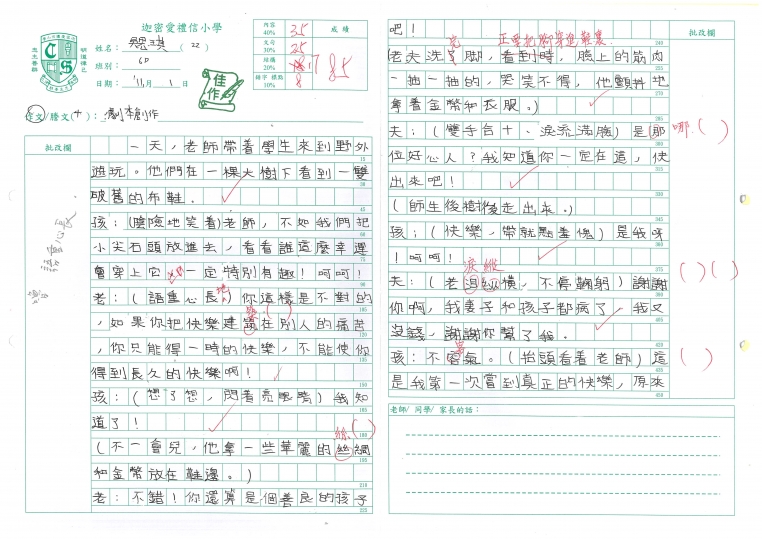 迦密愛禮信小學
姓名： （22）
班別： 6D
日期： '11 月 1 日
佳作
內容 40% 35
文句 30% 25
結構 20% 17
錯字 標點 10% 8
成績
85
作文/謄文(十)： 劇本創作
批改欄
一天，老師帶着學生來到野外
遊玩。他們在一棵大樹下看到一雙
破舊的布鞋。
孩：（陰險地笑着)老師，不如我們把
小尖石頭放進去，看看誰這麼幸運
會穿上它 一定特別有趣！呵呵！
老：（語重心長地）你這樣是不對的
，如果你把快樂建築在別人的痛苦
，你只能得一時的快樂，不能使你
得到長久的快樂啊！
孩：（想了想，閃着亮眼睛）我知
道了！
（不一會兒，他拿一些華麗的絲綢
和金幣放在鞋邊。）
老：不錯！你還算是個善良的孩子
語重心長
批改欄
吧！
正要把腳穿進鞋裏
(老夫洗完腳，看到時，臉上的筋肉
一抽一抽的，哭笑不得，他顫抖地
拿着金幣和衣服。)
夫：（雙手合十、淚流滿臉）是(那
位好心人？我知道你一定在這，快
出來吧！
哪（ ）
（師生後樹後走出來。）
孩：（快樂，帶就點羞愧）是我呀
！呵呵！
夫：（老淚縱橫，不停鞠躬）謝謝
你啊，我妻子和孩子都病了，我又
沒錢，謝謝你幫了我。
孩：不客氣。（抬頭看看老師）這
是我第一次嘗到真正的快樂，原來
老師/ 同學/ 家長的話：